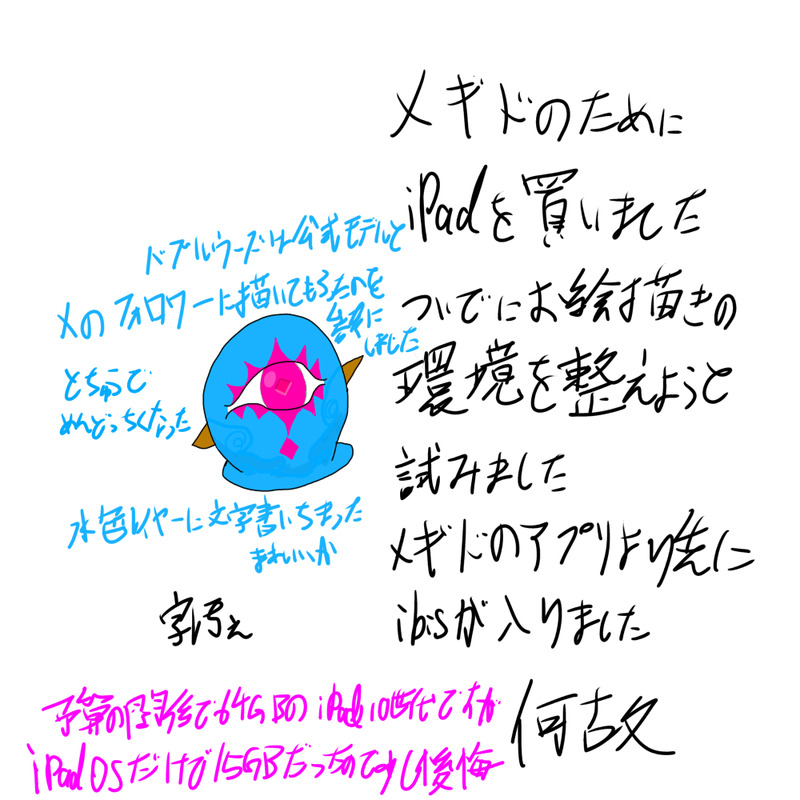 メギドのために
iPadを買いました
ついでにお絵描きの
環境を整えようと
試みました
メギドのアプリより先に
ibisが入りました
何古文
バブルウーズは公式モデルと
Xのフォロワーに描いてもらったのを
参考に
しました
とちゅうで
めんどっちくなった
水色レイヤーに文字書いちまった
まあいいか
字汚ぇ
予算の関係で64GBのiPad10世代ですが
iPadOSだけで15GBだったので少し後悔